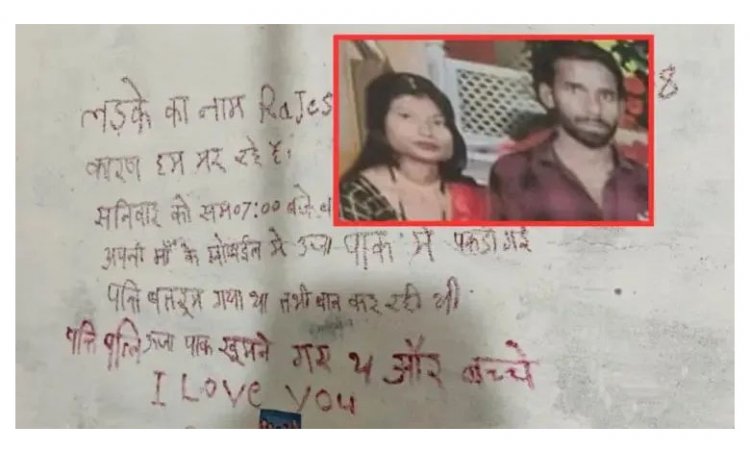 लड़के का नाम RaJes 8
कारण हम मर रहे है।
सनिवार को सम07:00 बजे
अपनी माँ के मोबाईल मे उर्जा पार्क में पकडी गई
पत्ति बातरूम गया था तभी बात कर रही थी
पत्ति पत्नि ऊर्जा पार्क घूमने गए थे और बच्चे
I LOVE YOU